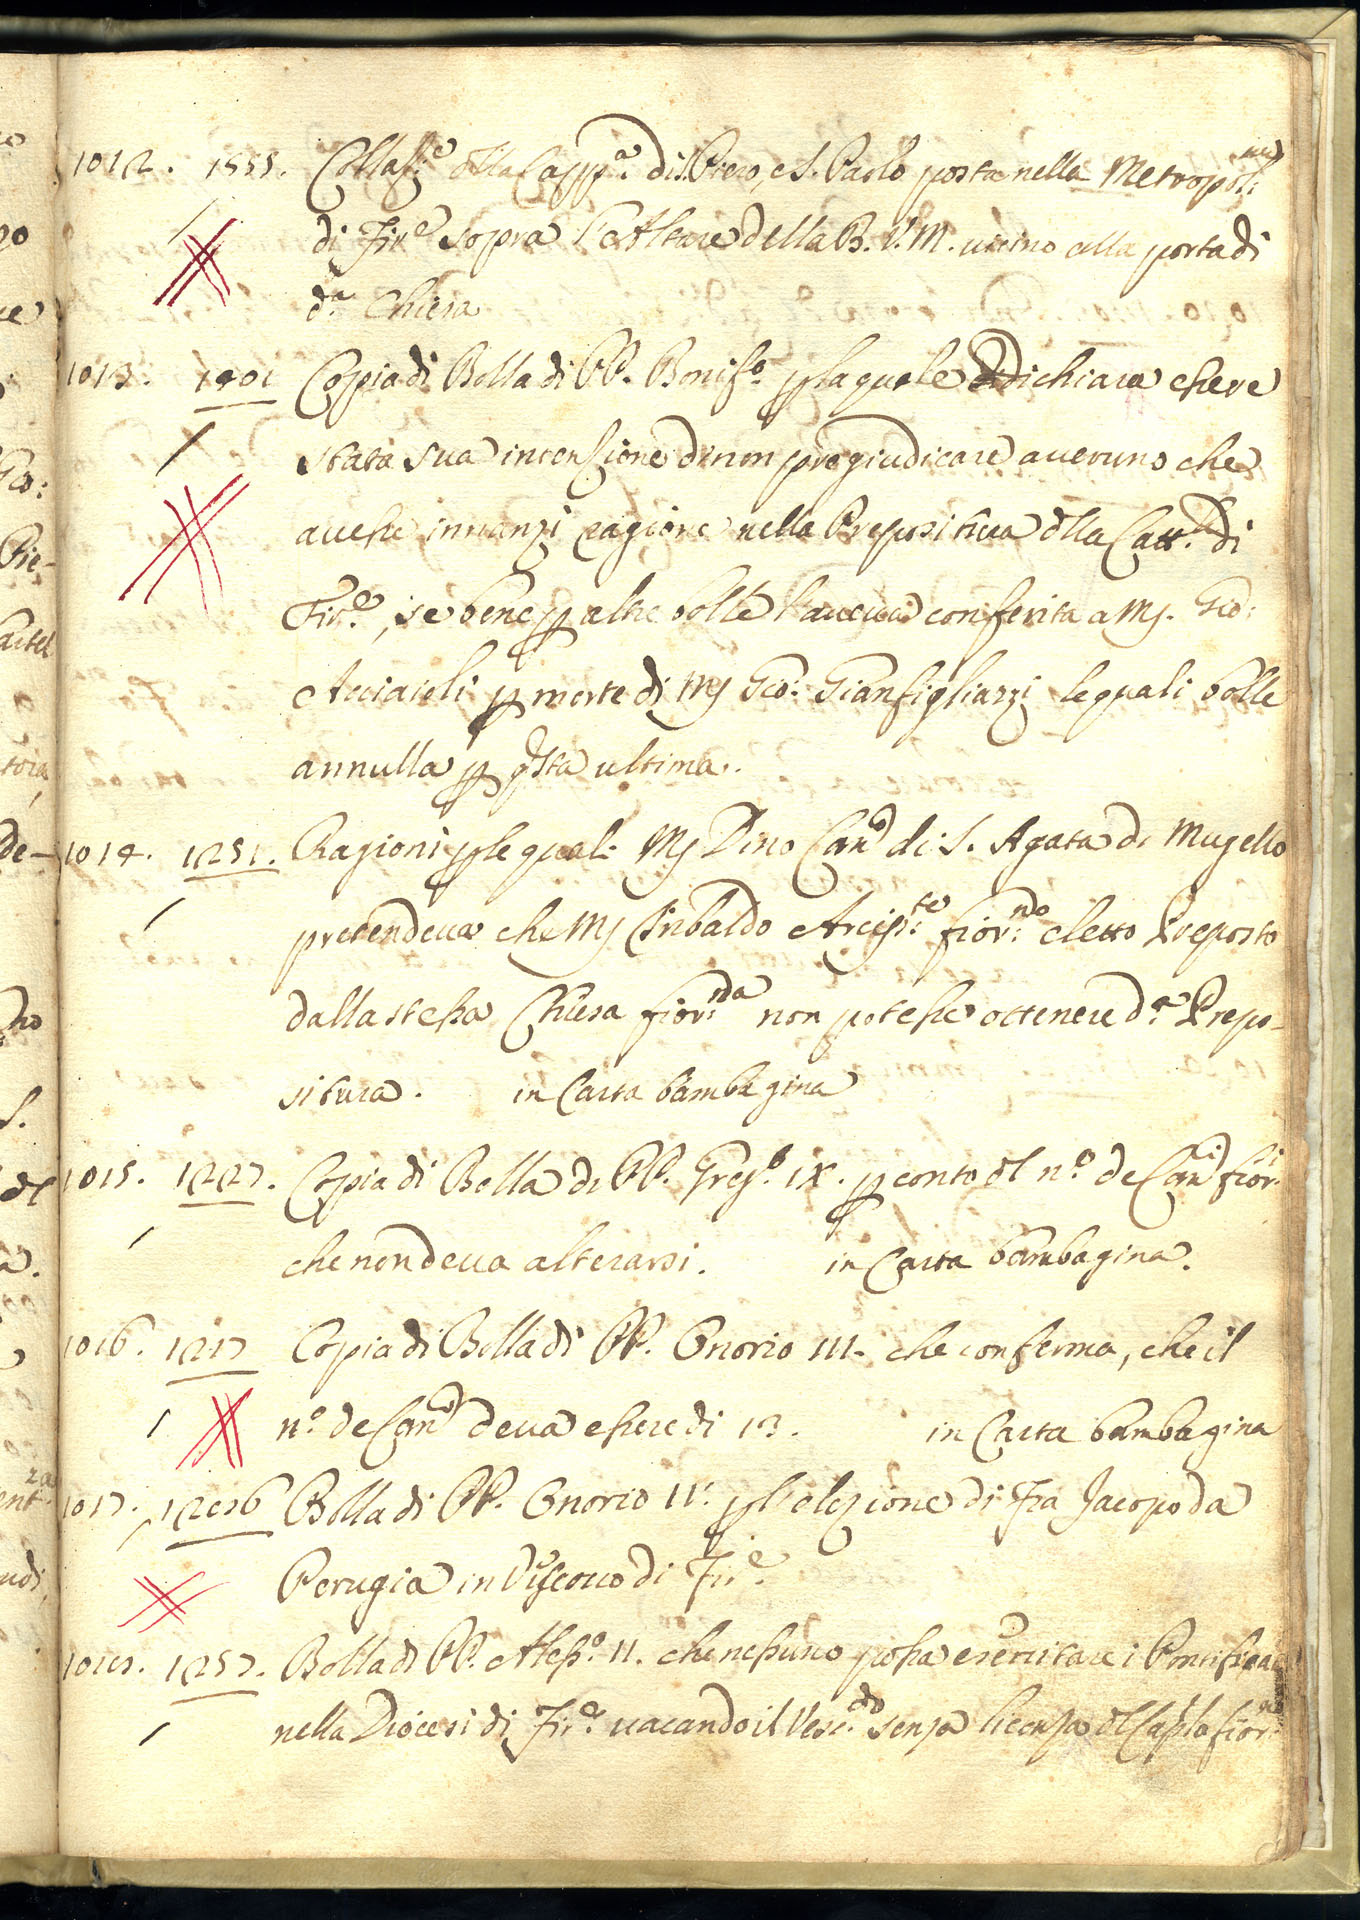 1012. 1555. Collaz:e d̃lla Capp.a di S. Piero, e S. Paolo posta nella Metropol:na
di Fir.e sopra l'Altare della B. V. M. uicino alla porta di
d.a Chiesa
1013. 1401 Copia di Bolla di PP. Bonif.o p la quale dichiara che ue
stata sua intenzione di non pregiudicare a ueruno che
auesse innanzi ragione nella Prepositura d̃lla Catt.le di
Fir.e, se bene p altre bolle l'aueua conferita a Mj. Gio:
Acciaioli p morte di Mj Gio: Gianfigliazzi le quali bolle
annulla p q̃sta ultima.
1014. 1251. Ragioni p le quali Mj Dino Can.o di S. Agata di Mugello
pretendeua che Mj Sinbaldo Arcip:te fior:no eletto Preposto
dalla stessa Chiesa fior:na non potesse ottenere d.a Prepo-
situra. in Carta bambagina
1015. 1227. Copia di Bolla di PP. Greg.o IX. p conto d̃l n.o de Can.i fior.i
che non deua alterarsi. in Carta bambagina.
1016. 1217 Copia di Bolla di PP. Onorio III. che conferma, che il
n.o de Can.i deua essere di 13. in Carta bambagina
1017. 1286 Bolla di PP. Onorio IV. p l'elezione di Fra Jacopo da
Perugia in Vescouo di Fir.e
1018. 1257. Bolla di PP. Aless.o II. che nessuno possa esercitare i Pontificali
nella Diocesi di Fir.e uacando il Vesc.do senza licenza d̃l Caplo fior:no